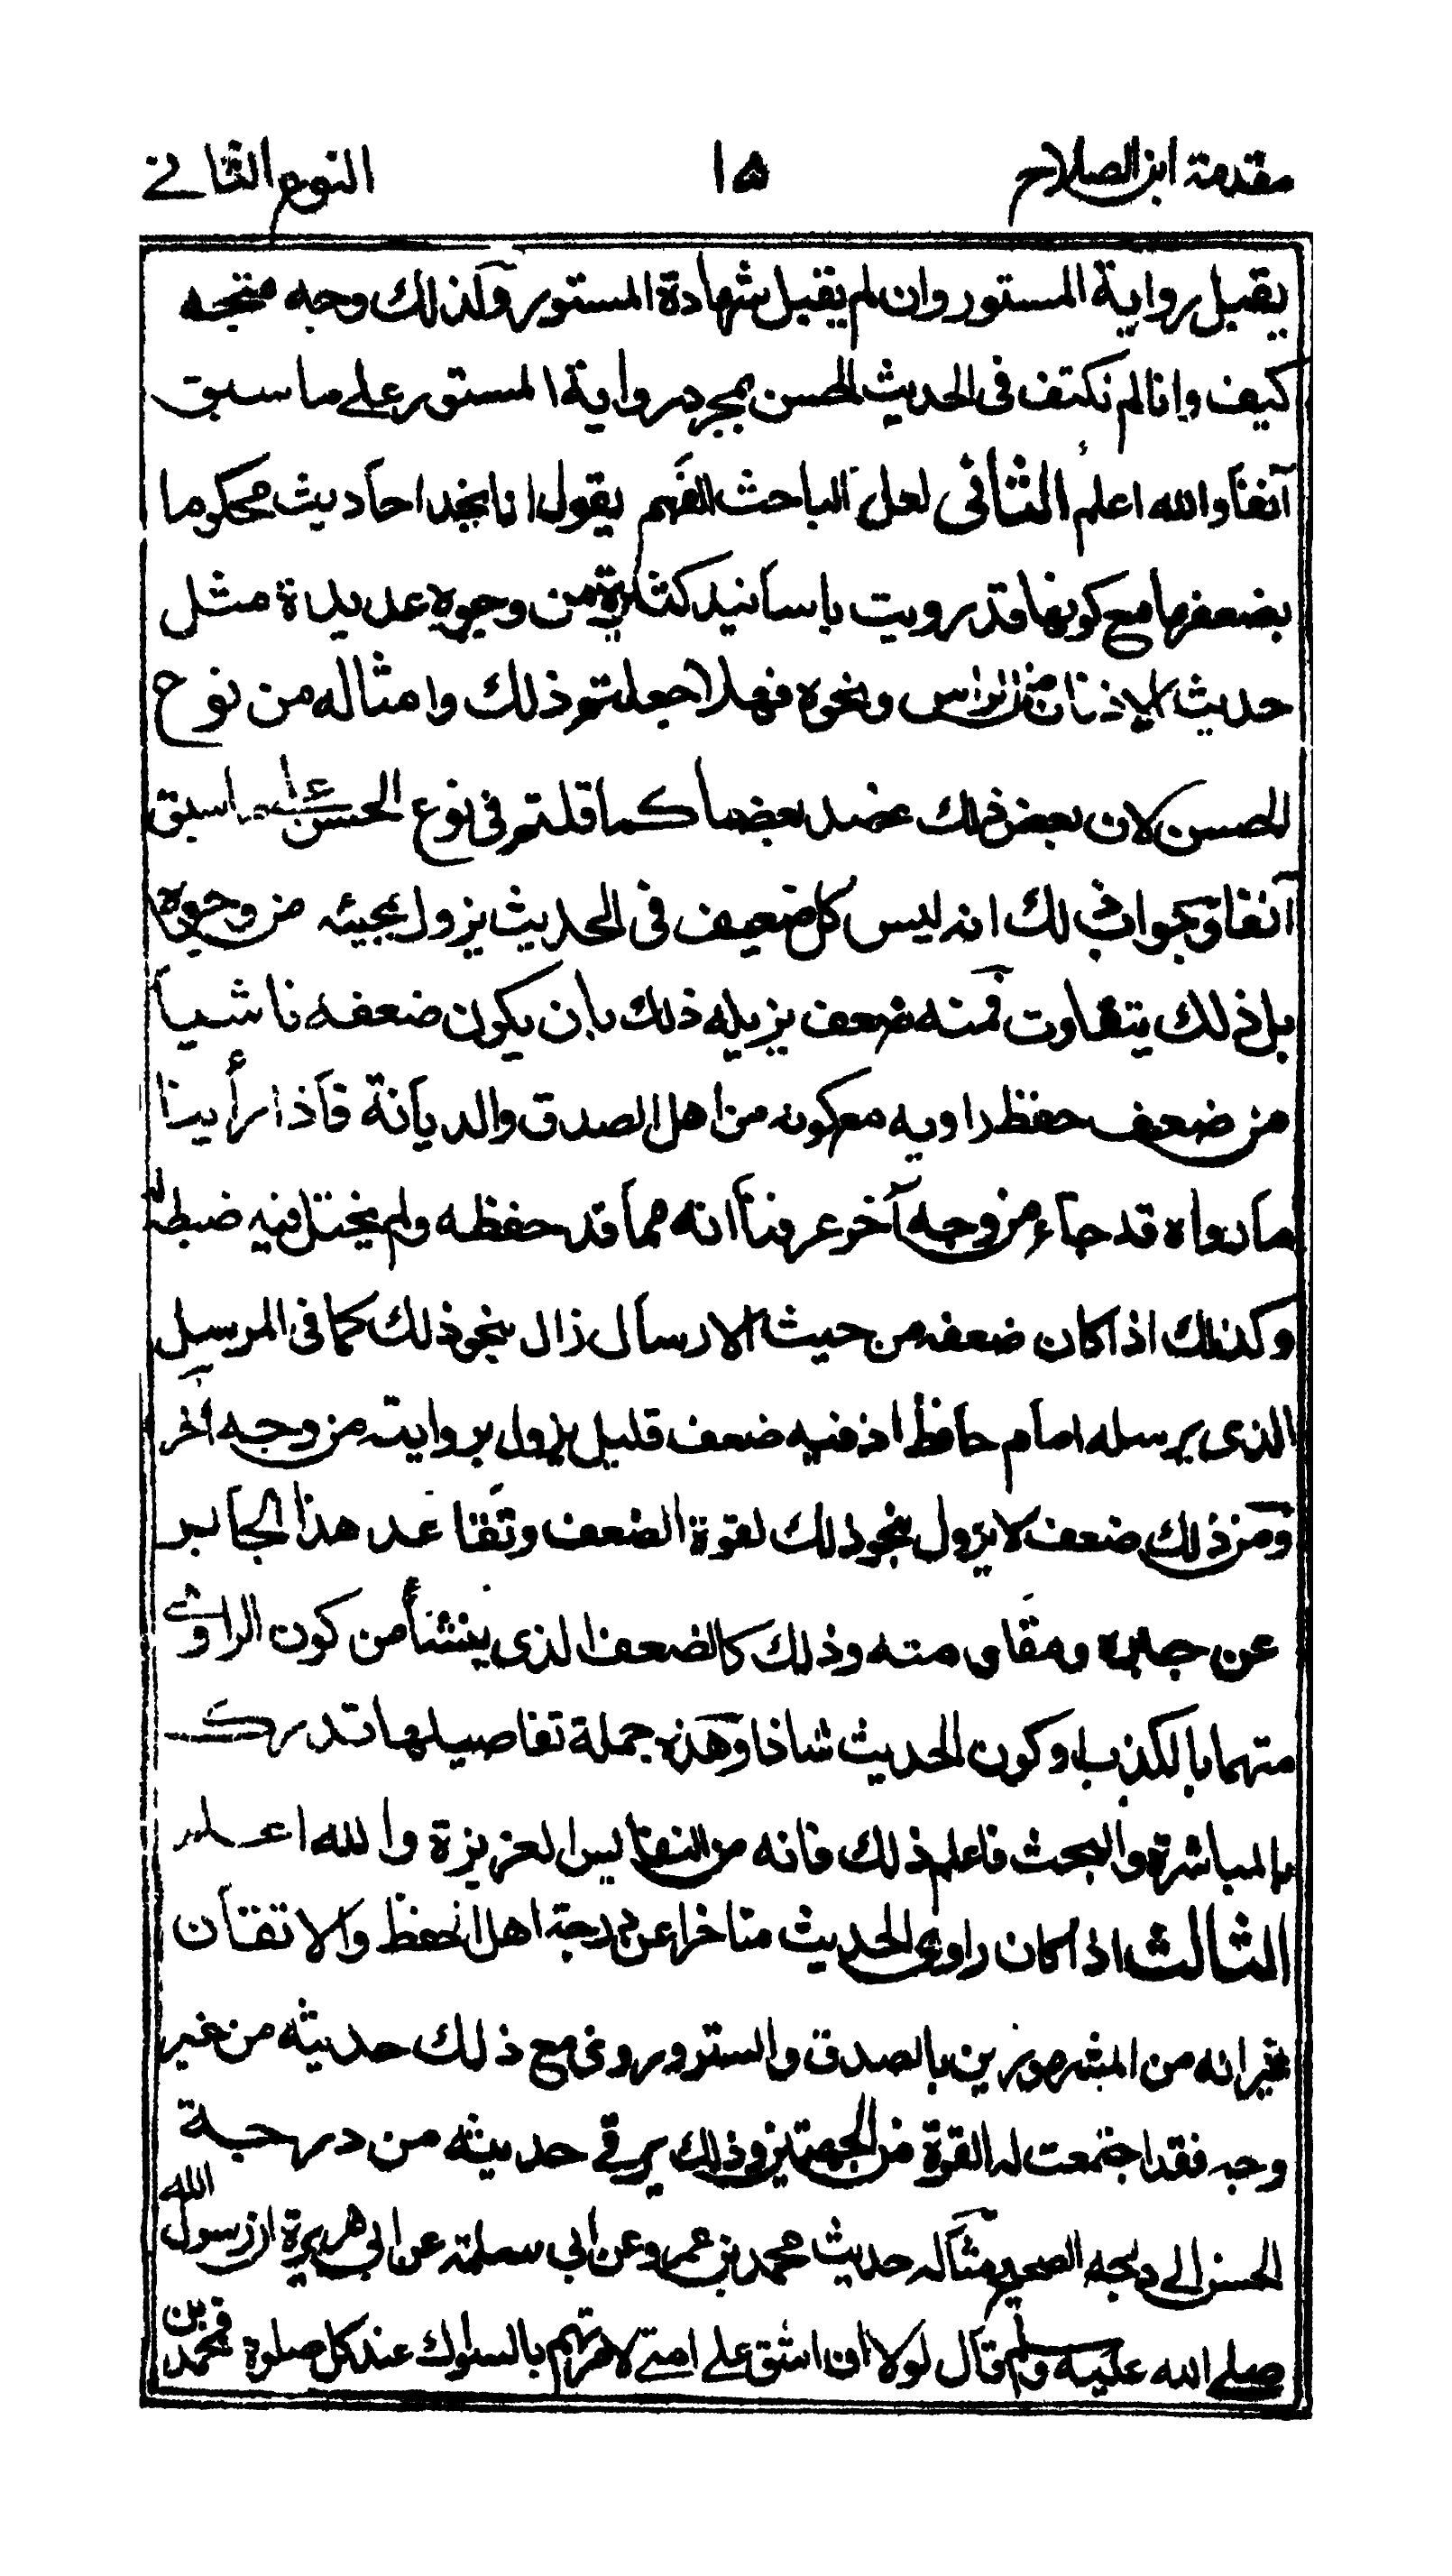 مقدمة ابن الصلاح ١٥ النوع الثانے
يقبل رواية المستور وان لم يقبل شهادة المستور ولذلك وجه متجه
كيف وانا لم نكتف فى الحديث الحسن بمجرد رواية المستور علے ما سبق
آنفا والله اعلم الثانى لعل الباحث الفهم يقول انا نجد احاديث محكوما
بضعفها مع كونها قد رويت باسانيد كثيرة من وجوه عديدة مثل
حديث الاذنان من الراس ونحوه فهلا جعلتم ذلك وامثاله من نوع
الحسن لان بعض ذلك عضد بعضا كما قلتم فى نوع الحسن علے ما سبق
آنفا وجواب ذلك انه ليس كل ضعيف فى الحديث يزول بمجيئه من وجوه
بل ذلك يتفاوت فمنه ضعف يزيله ذلك بان يكون ضعفه ناشيا
من ضعف حفظ راويه مع كونه من اهل الصدق والديانة فاذا رأينا
ما رواه قد جاء من وجه آخر عرفنا انه مما قد حفظه ولم يختل فيه ضبطه
وكذلك اذا كان ضعفه من حيث الارسال زال بنحو ذلك كما فى المرسل
الذى يرسله امام حافظ اذ فيه ضعف قليل يزول بروايته من وجه آخر
ومن ذلك ضعف لا يزول بنحو ذلك لقوة الضعف وتقاعد هذا الجابر
عن جبره ومقاومته وذلك كالضعف الذى ينشأ من كون الراوے
متهما بالكذب او كون الحديث شاذا وهذه جملة تفاصيلها تدرك
بالمباشرة والبحث فاعلم ذلك فانه من النفايس العزيزة والله اعلم
الثالث اذا كان راوى الحديث متاخرا عن درجة اهل الحفظ والاتقان
غير انه من المشهورين بالصدق والستر وروى مع ذلك حديثه من غير
وجه فقد اجتمعت له القوة من الجهتين وذلك يرقے حديثه من درجة
الحسن الى درجه الصحيح مثاله حديث محمد بن عمرو عن ابى سلمة عن ابى هريرة ان رسول الله
صلے الله عليه وسلم قال لولا ان اشق علے امتے لامرتهم بالسواك عند كل صلوة فمحمد بن